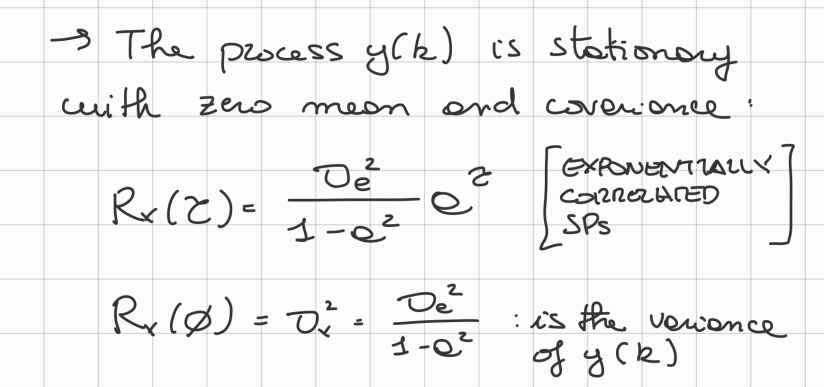 → The process y(k) is stationary
with zero mean and covariance:
Rₓ(τ) = σₑ² / (1 - a²) a^τ [EXPONENTIALLY CORRELATED SPs]
Rₓ(∅) = σₓ² = σₑ² / (1 - a²) : is the variance of y(k)